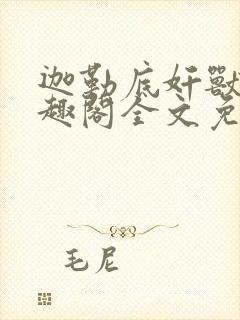 迦勒底奸獸
趣閣全文免
毛尼